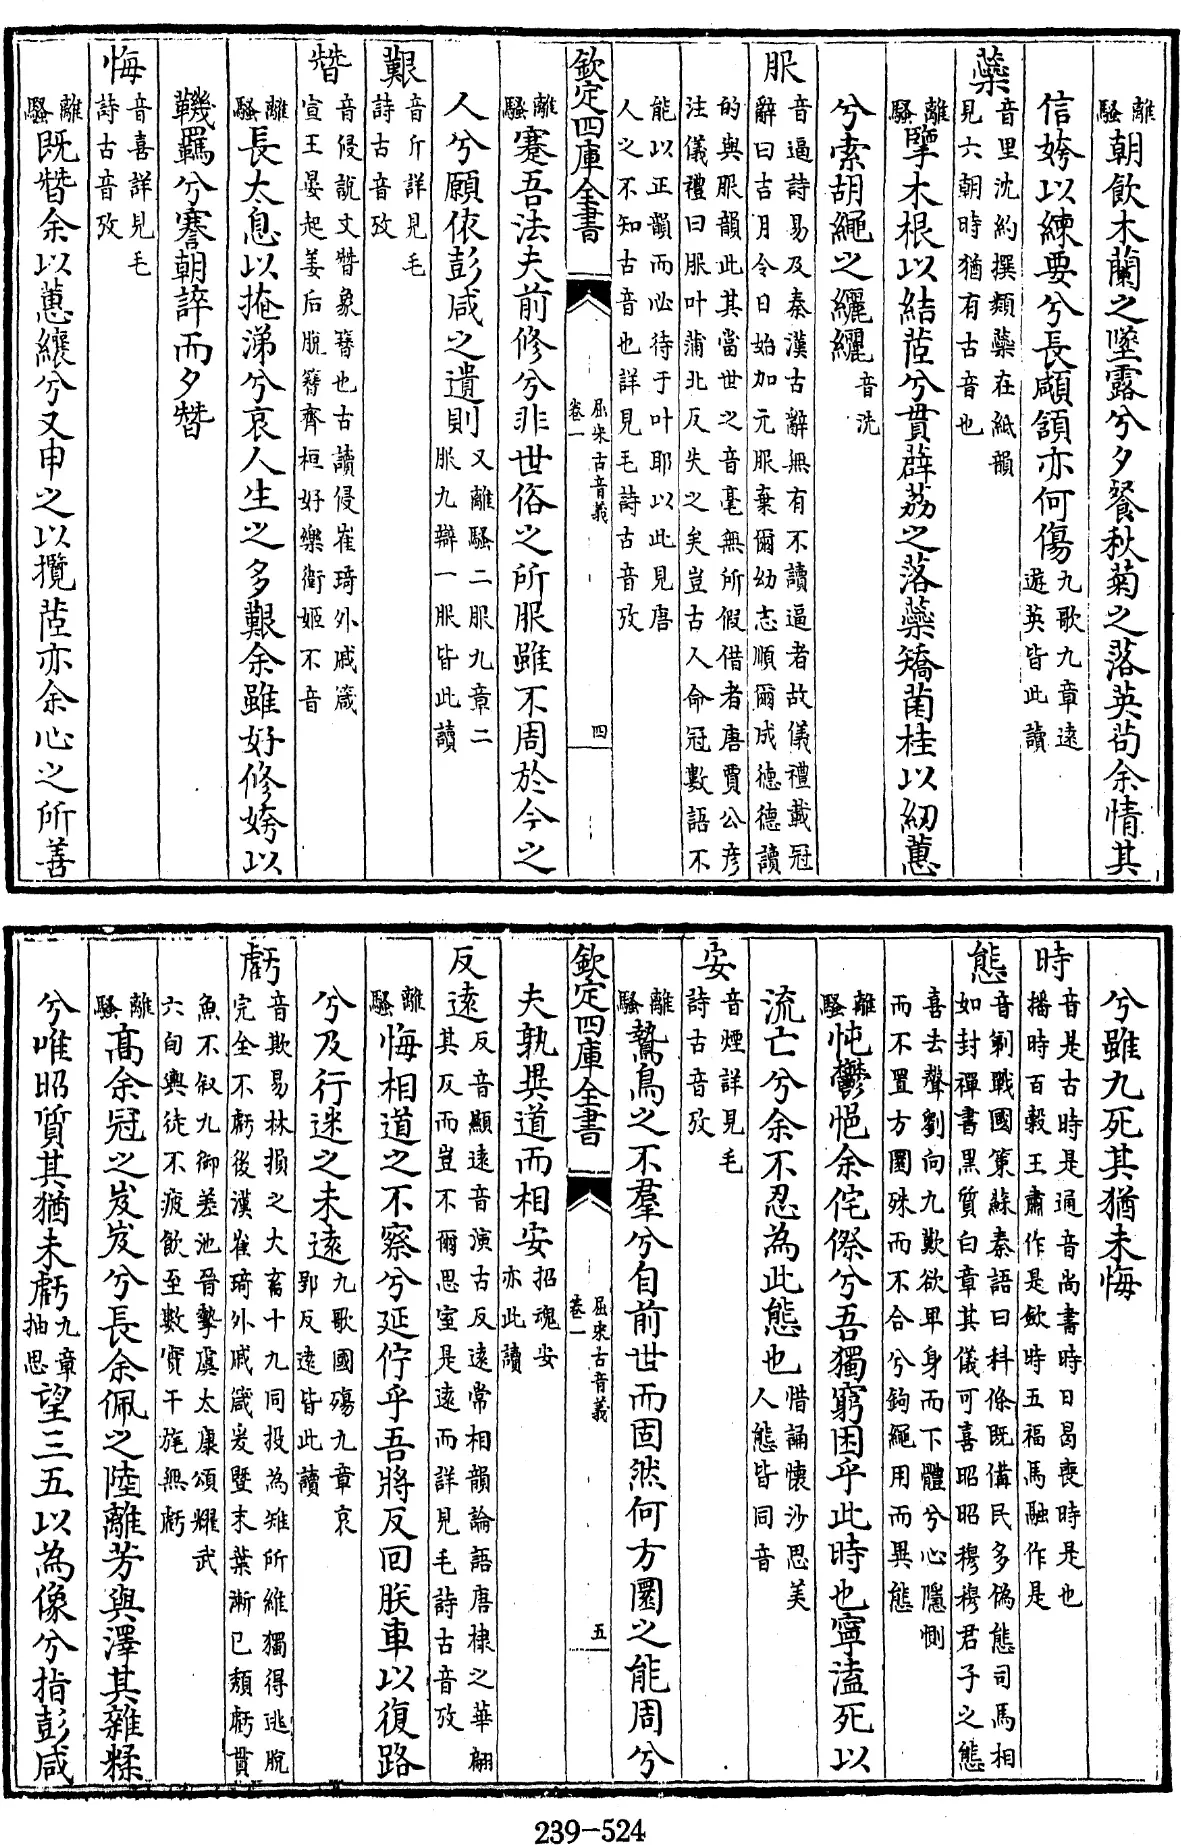 離騷朝飲木蘭之墜露兮夕餐秋菊之落英茍余情其
信姱以練要兮長顑頷亦何傷九歌九章遠遊英皆此讀
蘂音里沈約撰類蘂在紙韻見六朝時猶有古音也
離騷擥木根以結茝兮貫薜荔之落蘂矯菌桂以紉蕙
兮索胡繩之纚纚音洗
服音逼詩易及秦漢古辭無有不讀逼者故儀禮載冠辭曰吉月令日始加元服棄爾幼志順爾成德德讀
的與服韻此其當世之音毫無所假借者唐賈公彥注儀禮曰服叶蒲北反失之矣豈古人命冠數語不
能以正韻而必待于叶耶以此見唐人之不知古音也詳見毛詩古音攷
欽定四庫全書 屈宋古音義 卷一 四
離騷謇吾法夫前修兮非世俗之所服雖不周於今之
人兮願依彭咸之遺則又離騷二服九章二服九辯一服皆此讀
艱音斤詳見毛詩古音攷
朁音侵說文朁象簪也古讀侵崔琦外戚箴宣王晏起姜后脫簪齊桓好樂衛姬不音
離騷長太息以掩涕兮哀人生之多艱余雖好修姱以
鞿羈兮謇朝誶而夕朁
悔音喜詳見毛詩古音攷
離騷既朁余以蕙纕兮又申之以攬茝亦余心之所善
兮雖九死其猶未悔
時音是古時是通音尚書時日曷喪時是也播時百穀王肅作是斂時五福馬融作是
態音剃戰國策蘇秦語曰科條既備民多偽態司馬相如封禪書黑質白章其儀可喜昭昭穆穆君子之態
喜去聲劉向九歎欲卑身而下體兮心隱惻而不置方圜殊而不合兮鉤繩用而異態
離騷忳鬱悒余侘傺兮吾獨窮困乎此時也寧溘死以
流亡兮余不忍為此態也惜誦懷沙思美人態皆同音
安音煙詳見毛詩古音攷
離騷鷙鳥之不羣兮自前世而固然何方圜之能周兮
欽定四庫全書 屈宋古音義 卷一 五
夫孰異道而相安招魂安亦此讀
反遠反音顯遠音演古反遠常相韻論語唐棣之華翩其反而豈不爾思室是遠而詳見毛詩古音攷
離騷悔相道之不察兮延佇乎吾將反回朕車以復路
兮及行迷之未遠九歌國殤九章哀郢反遠皆此讀
虧音欺易林損之大畜十九同投為雉所維獨得逃脫完全不虧後漢崔琦外戚箴爰暨末葉漸已頹虧貫
魚不敘九御差池晉摯虞太康頌耀武六旬輿徒不疲飲至數實干旄無虧
離騷高余冠之岌岌兮長余佩之陸離芳與澤其雜糅
兮唯昭質其猶未虧九章抽思望三五以為像兮指彭咸
239-524